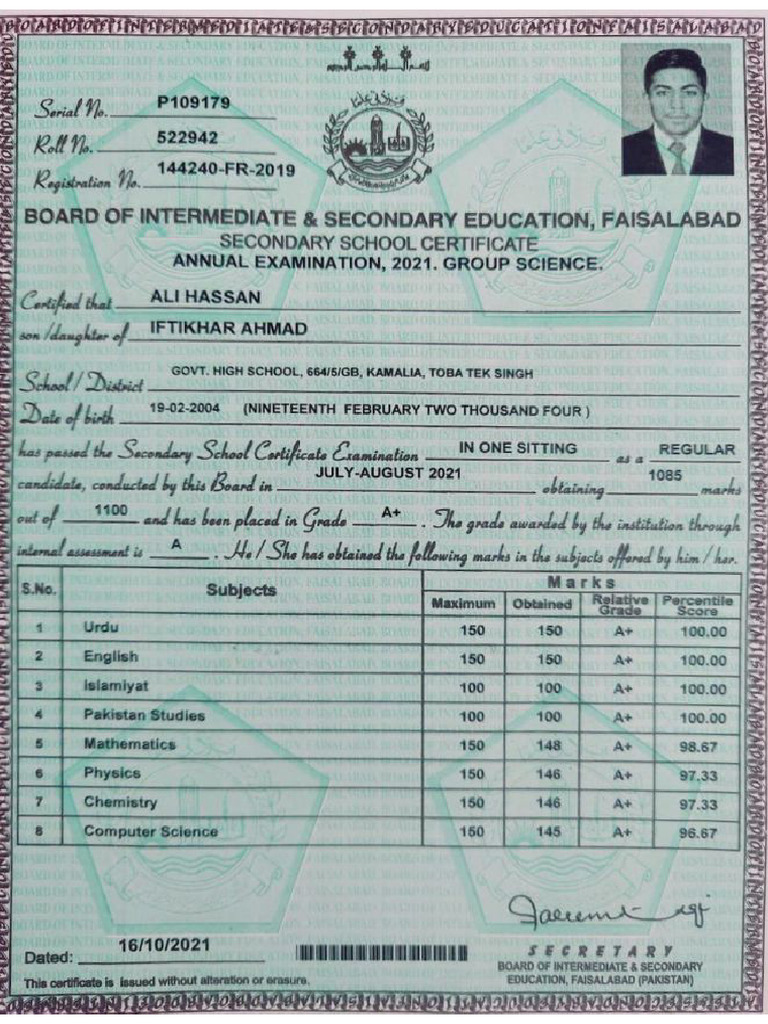 Serial No. P109179
Roll No. 522942
Registration No. 144240-FR-2019
BOARD OF INTERMEDIATE & SECONDARY EDUCATION, FAISALABAD
SECONDARY SCHOOL CERTIFICATE
ANNUAL EXAMINATION, 2021. GROUP SCIENCE.
Certified that ALI HASSAN
son/daughter of IFTIKHAR AHMAD
School/District GOVT. HIGH SCHOOL, 664/5/GB, KAMALIA, TOBA TEK SINGH
Date of birth 19-02-2004 (NINETEENTH FEBRUARY TWO THOUSAND FOUR )
has passed the Secondary School Certificate Examination IN ONE SITTING as a REGULAR
candidate, conducted by this Board in JULY-AUGUST 2021 obtaining 1085 marks
out of 1100 and has been placed in Grade A+ . The grade awarded by the institution through
internal assessment is A . He/She has obtained the following marks in the subjects offered by him/her.
S.No. Subjects Marks
Maximum Obtained Relative Grade Percentile Score
1 Urdu 150 150 A+ 100.00
2 English 150 150 A+ 100.00
3 Islamiyat 100 100 A+ 100.00
4 Pakistan Studies 100 100 A+ 100.00
5 Mathematics 150 148 A+ 98.67
6 Physics 150 146 A+ 97.33
7 Chemistry 150 146 A+ 97.33
8 Computer Science 150 145 A+ 96.67
Dated: 16/10/2021
SECRETARY
BOARD OF INTERMEDIATE & SECONDARY
EDUCATION, FAISALABAD (PAKISTAN)
This certificate is issued without alteration or erasure.